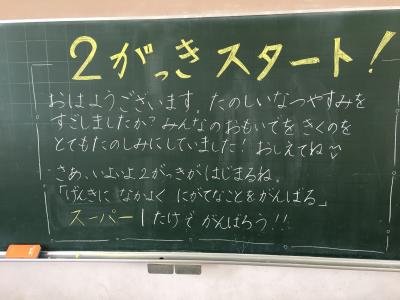 2がっきスタート!
おはようございます。たのしいなつやすみを
すごしましたか?みんなのおもいでをきくのを
とてもたのしみにしていました!おしえてね♡
さあ、いよいよ2がっきがはじまるね。
「げんきに なかよく にがてなことをがんばる」
スーパー1たけで がんばろう!!